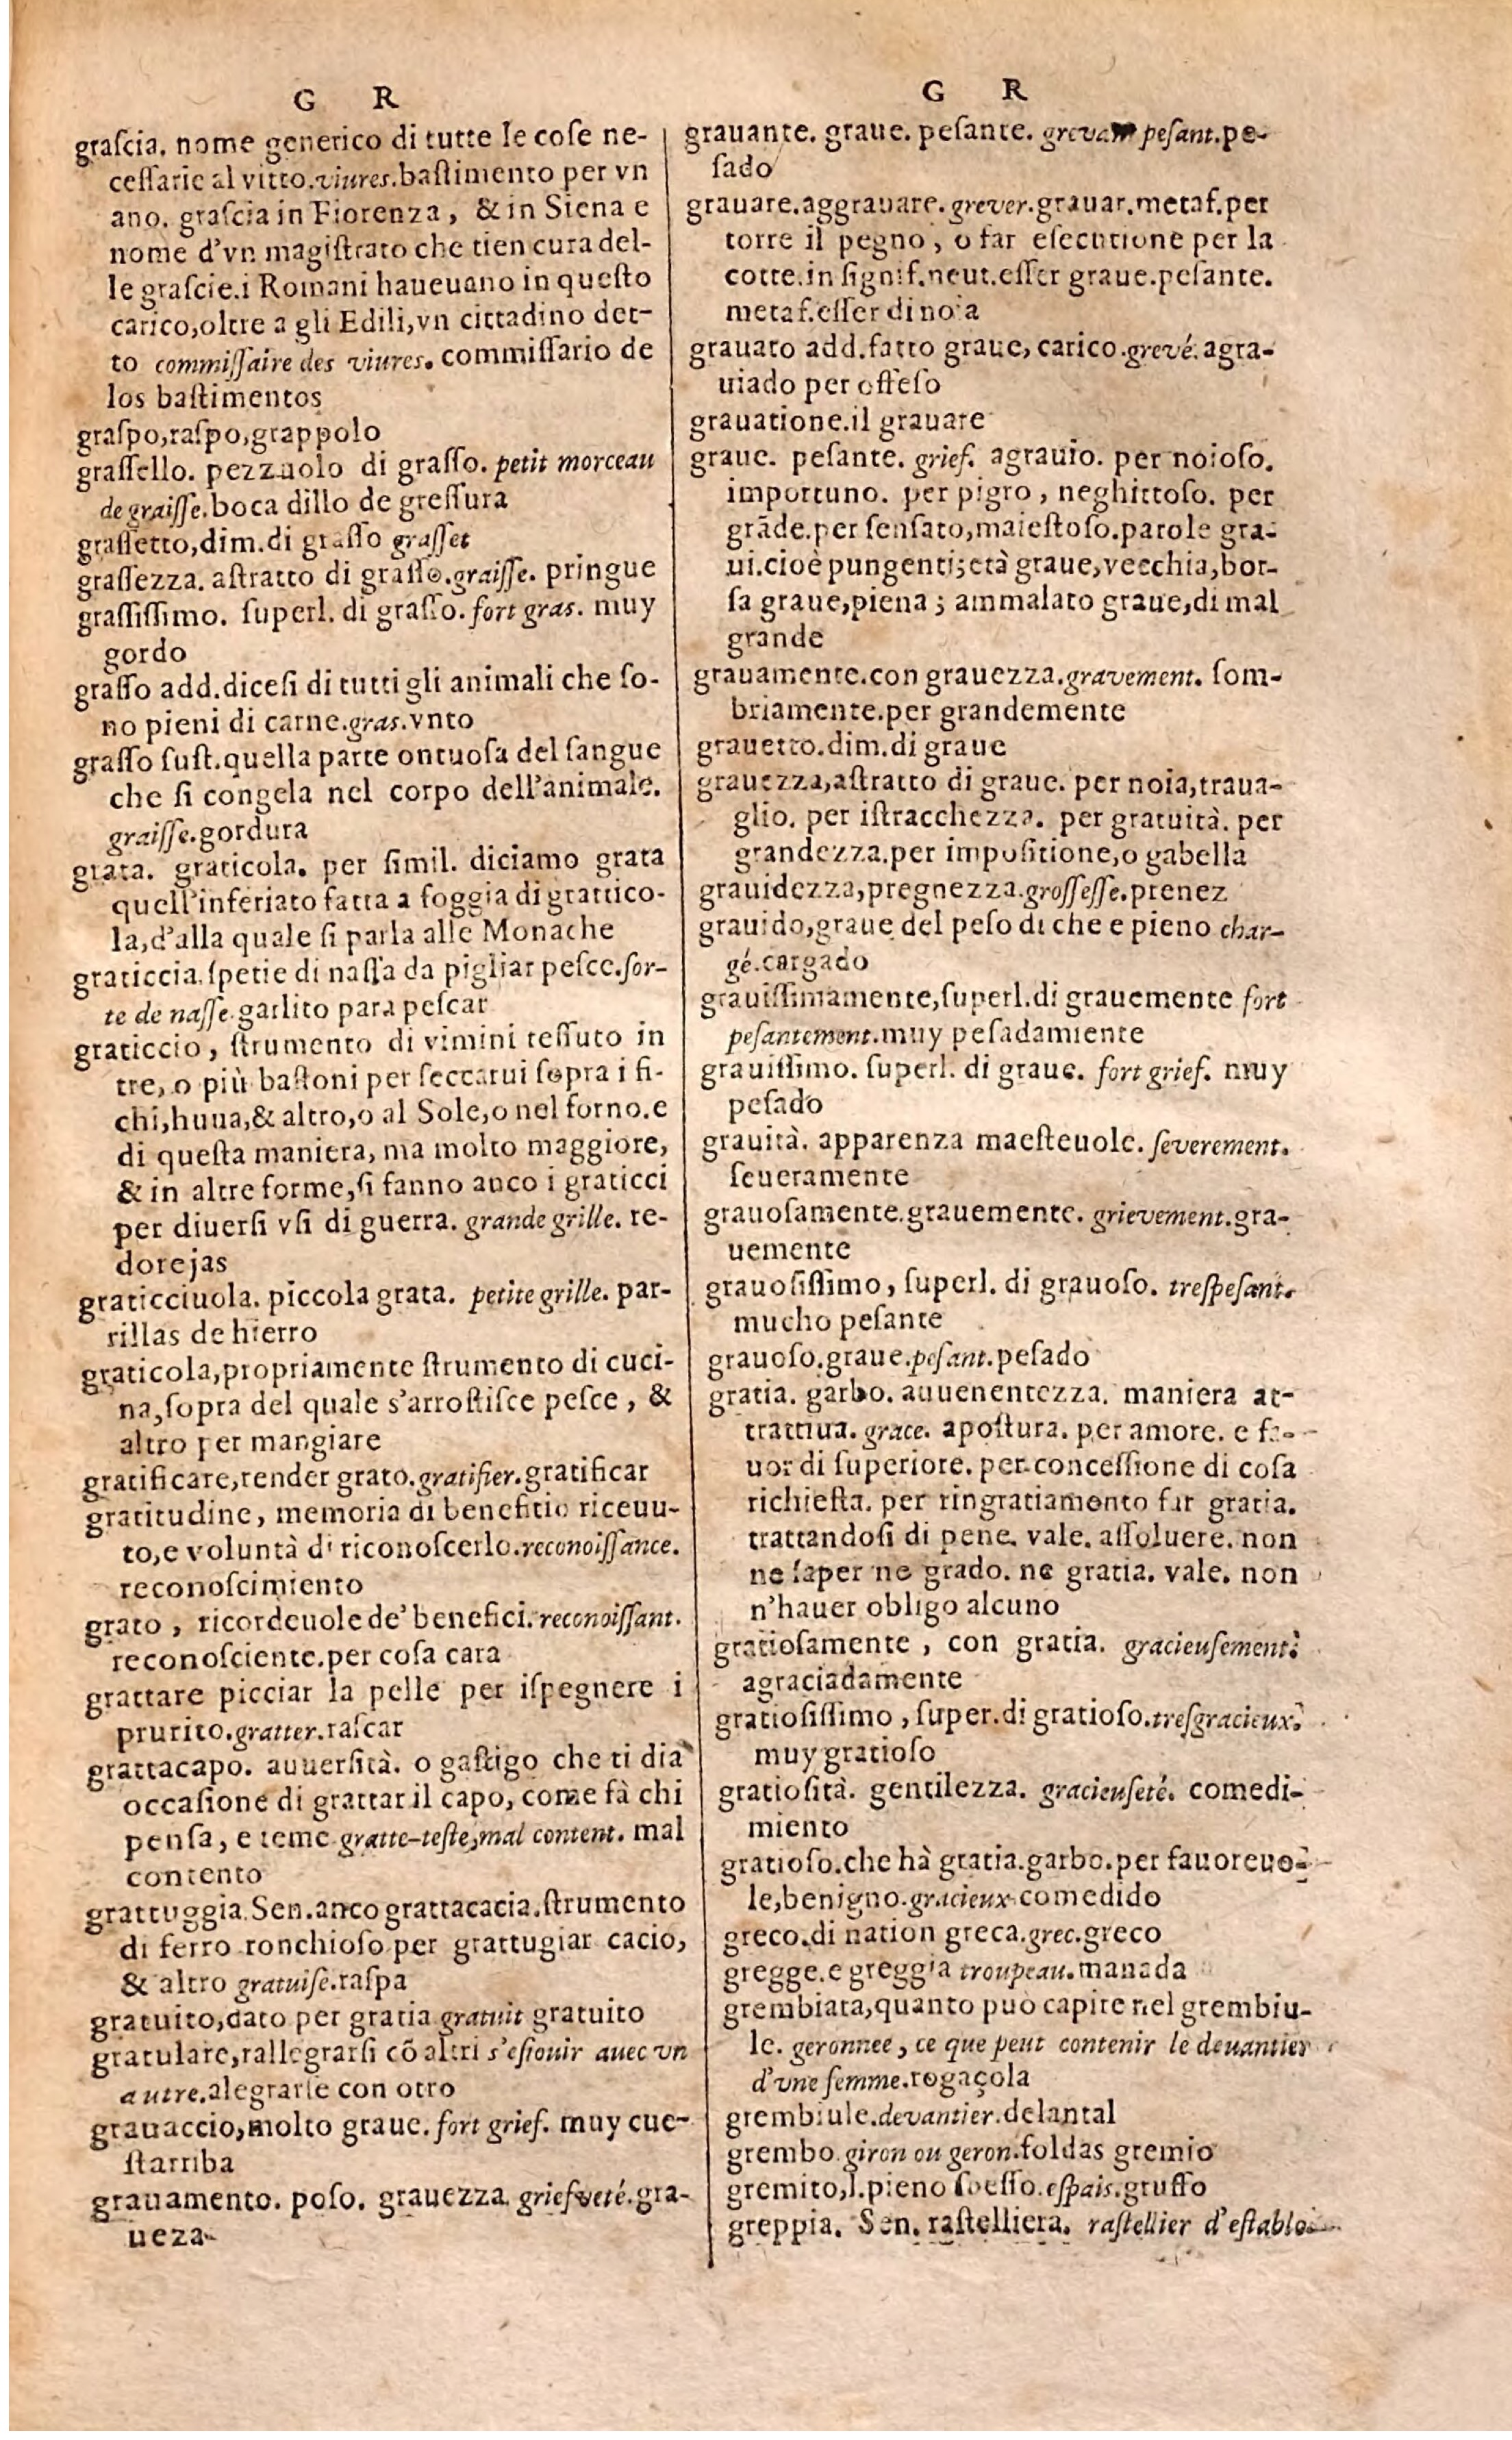 G R
graſcia. nome generico di tutte le coſe ne-
ceſſarie al vitto. viures. baſtimento per vn
ano. graſcia in Fiorenza, & in Siena e
nome d'vn magiſtrato che tien cura del-
le graſcie. i Romani haueuano in queſto
carico, oltre a gli Edili, vn cittadino det-
to commiſſaire des viures. commiſſario de
los baſtimentos
graſpo, raſpo, grappolo
graſſello. pezzuolo di graſſo. petit morceau
de graiſſe. boca dillo de greſſura
graſſetto, dim. di graſſo graſſet
graſſezza. aſtratto di graſſo. graiſſe. pringue
graſſiſſimo. ſuperl. di graſſo. fort gras. muy
gordo
graſſo add. diceſi di tutti gli animali che ſo-
no pieni di carne. gras. vnto
graſſo ſuſt. quella parte ontuoſa del ſangue
che ſi congela nel corpo dell'animale.
graiſſe. gordura
grata. graticola. per ſimil. diciamo grata
quell'inferiato fatta a foggia di grattico-
la, d'alla quale ſi parla alle Monache
graticcia. ſpetie di naſſa da pigliar peſce. ſor-
te de naſſe. garlito para peſcar
graticcio, ſtrumento di vimini teſſuto in
tre, o più baſtoni per ſeccarui ſopra i fi-
chi, huua, & altro, o al Sole, o nel forno. e
di queſta maniera, ma molto maggiore,
& in altre forme, ſi fanno anco i graticci
per diuerſi vſi di guerra. grande grille. re-
dorejas
graticciuola. piccola grata. petite grille. par-
rillas de hierro
graticola, propriamente ſtrumento di cuci-
na, ſopra del quale s'arroſtiſce peſce, &
altro per mangiare
gratificare, render grato. gratifier. gratificar
gratitudine, memoria di benefitio riceuu-
to, e voluntà di riconoſcerlo. reconoiſſance.
reconoſcimiento
grato, ricordeuole de' benefici. reconoiſſant.
reconoſciente. per coſa cara
grattare picciar la pelle per iſpegnere i
prurito. gratter. raſcar
grattacapo. auuerſità. o gaſtigo che ti dia
occaſione di grattar il capo, come fà chi
penſa, e teme gratte-teſte, mal content. mal
contento
grattuggia. Sen. anco grattacacia. ſtrumento
di ferro ronchioſo per grattugiar cacio,
& altro gratuiſe. raſpa
gratuito, dato per gratia gratuit gratuito
gratulare, rallegrarſi cõ altri s'eſiouir auec vn
autre. alegrarſe con otro
grauaccio, molto graue. fort grief. muy cue-
ſtarriba
grauamento. poſo. grauezza. griefueté. gra-
ueza
G R
grauante. graue. peſante. peſant. pe-
ſado
grauare. aggrauare. grever. grauar. metaf. per
torre il pegno, o far eſecutione per la
cotte. in ſignif. neut. eſſer graue. peſante.
metaf. eſſer di noia
grauato add. fatto graue, carico. grevé. agra-
uiado per offeſo
grauatione. il grauare
graue. peſante. grief. agrauio. per noioſo.
importuno. per pigro, neghittoſo. per
grãde. per ſenſato, maieſtoſo. parole gra-
ui. cioè pungenti; età graue, vecchia, bor-
ſa graue, piena; ammalato graue, di mal
grande
grauamente. con grauezza. gravement. ſom-
briamente. per grandemente
grauetto. dim. di graue
grauezza, aſtratto di graue. per noia, traua-
glio. per iſtracchezza. per gratuità. per
grandezza. per impoſitione, o gabella
grauidezza, pregnezza. groſſeſſe. prenez
grauido, graue del peſo di che e pieno char-
gé. cargado
grauiſſimamente, ſuperl. di grauemente fort
peſantement. muy peſadamiente
grauiſſimo. ſuperl. di graue. fort grief. muy
peſado
grauità. apparenza maeſteuole. ſeverement.
ſeueramente
grauoſamente. grauemente. grievement. gra-
uemente
grauoſiſſimo, ſuperl. di grauoſo. treſpeſant.
mucho peſante
grauoſo. graue. peſant. peſado
gratia. garbo. auuenentezza. maniera at-
trattiua. grace. apoſtura. per amore. e fa-
uor di ſuperiore. per conceſſione di coſa
richieſta. per ringratiamento far gratia.
trattandoſi di pene. vale. aſſoluere. non
ne ſaper ne grado. ne gratia. vale. non
n'hauer obligo alcuno
gratioſamente, con gratia. gracieuſement.
agraciadamente
gratioſiſſimo, ſuper. di gratioſo. treſgracieux.
muy gratioſo
gratioſità. gentilezza. gracieuſeté. comedi-
miento
gratioſo. che hà gratia. garbo. per fauoreuo-
le, benigno. gracieux. comedido
greco. di nation greca. grec. greco
gregge. e greggia troupeau. manada
grembiata, quanto può capire nel grembiu-
le. geronnee, ce que peut contenir le deuantier
d'vne femme. rogaçola
grembiule. devantier. delantal
grembo. giron ou geron. foldas gremio
gremito, l. pieno ſpeſſo. eſpais. gruſſo
greppia. Sen. raſtelliera. raſtellier d'eſtable